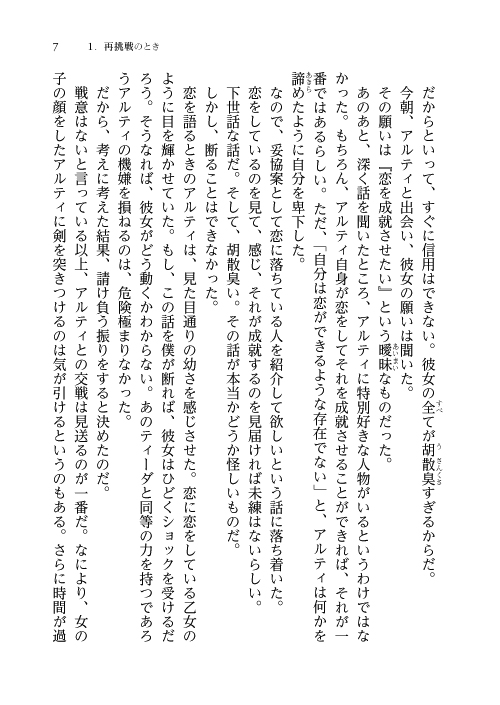 7　1. 再挑戦のとき
　だからといって、すぐに信用はできない。彼女の全てが胡散臭すぎるからだ。
　今朝、アルティと出会い、彼女の願いは聞いた。
　その願いは『恋を成就させたい』という曖昧なものだった。
　あのあと、深く話を聞いたところ、アルティに特別好きな人物がいるというわけではな
かった。もちろん、アルティ自身が恋をしてそれを成就させることができれば、それが一
番ではあるらしい。ただ、「自分は恋ができるような存在でない」と、アルティは何かを
諦めたように自分を卑下した。
　なので、妥協案として恋に落ちている人を紹介して欲しいという話に落ち着いた。
　恋をしているのを見て、感じ、それが成就するのを見届ければ未練はないらしい。
　下世話な話だ。そして、胡散臭い。その話が本当かどうか怪しいものだ。
　しかし、断ることはできなかった。
　恋を語るときのアルティは、見た目通りの幼さを感じさせた。恋に恋をしている乙女の
ように目を輝かせていた。もし、この話を僕が断れば、彼女はひどくショックを受けるだ
ろう。そうなれば、彼女がどう動くかわからない。あのティーダと同等の力を持つであろ
うアルティの機嫌を損ねるのは、危険極まりなかった。
　だから、考えに考えた結果、請け負う振りをすると決めたのだ。
　戦意はないと言っている以上、アルティとの交戦は見送るのが一番だ。なにより、女の
子の顔をしたアルティに剣を突きつけるのは気が引けるというのもある。さらに時間が過